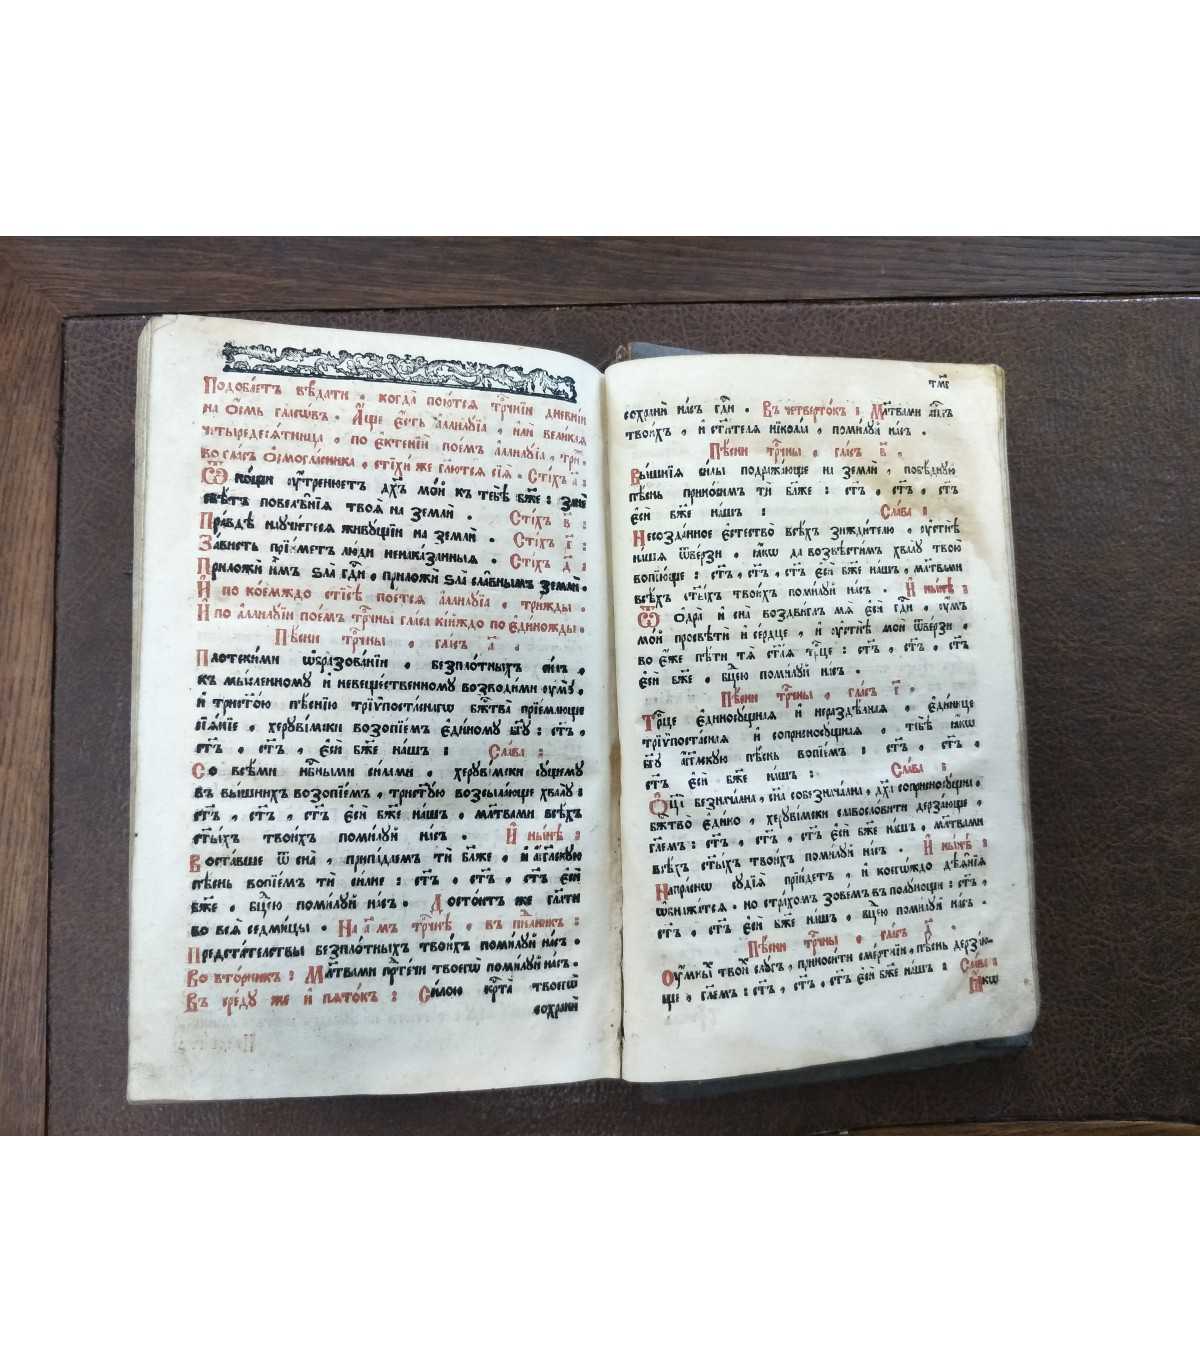 Подоба́етъ вѣ́дати , когда̀ пою́тся трⷪ҇чнїи дне́внїи
на ѻ҆́смь гласѡ́въ . А҆́ще є҆́сть а҆ллилꙋ́їа , и҆лѝ вели́кая
четыредесѧ́тница , по є҆ктенїѝ пое́мъ а҆ллилꙋ́їа ,
во гла́съ ѻ҆смогла́сника , стїхѝ же глю́тся сїѧ̑ . Сті́хъ а҃ :
Ѿ но́щи ᲂу҆́тренюетъ дꙋ́хъ мо́й къ тебѣ̀ бж҃е : занѐ
свѣ́тъ повелѣ̑нїя твоѧ̑ на землѝ . Сті́хъ в҃ :
Пра́вдѣ наꙋчи́теся живꙋ́щїи на землѝ . Сті́хъ г҃ :
За́висть прїи́метъ лю́ди ненака́занныя . Сті́хъ д҃ :
Приложѝ и҆̀мъ ѕла̀ гдⷭ҇и , приложѝ ѕла̀ сла̑внымъ землѝ .
И҆ по коемꙋ́ждо стїсѣ̀ пое́тся а҆ллилꙋ́їа , три́жды .
И҆ по а҆ллилꙋ́їи пое́мъ трⷪ҇чны гла́са кїи́ждо по є҆ди́ножды .
Пѣ́сни трⷪ҇чны , гла́съ а҃ .
Плотски́ми ѡ҆бразова́нїи , безпло́тныхъ си́лъ ,
къ мы́сленномꙋ и҆ невеще́ственномꙋ возводи́ми ᲂу҆мꙋ̀ ,
и҆ трист҃о́ю пѣ́снїю трїѵпоста́снагѡ бж҃ства̀ прїе́млюще
сїѧ́нїе , херꙋві́мски возопїе́мъ є҆ди́номꙋ бг҃ꙋ : ст҃ъ ,
ст҃ъ , ст҃ъ , є҆сѝ бж҃е на́шъ : Сла́ва :
Со всѣ́ми нбⷭ҇ными си́лами , херꙋві́мски сꙋ́щемꙋ
въ вы́шнихъ возопїе́мъ , трист҃ꙋ́ю возсыла́юще хвалꙋ̀ :
ст҃ъ , ст҃ъ , ст҃ъ є҆сѝ бж҃е на́шъ , мл҃твами всѣ́хъ
ст҃ы́хъ твои́хъ поми́лꙋй на́съ . И҆ ны́нѣ :
Воста́вше ѿ сна̀ , припа́даемъ тѝ бл҃же , и҆ а҆́гг҃льскꙋю
пѣ́снь вопїе́мъ тѝ си́льне : ст҃ъ , ст҃ъ , ст҃ъ є҆сѝ
бж҃е , бцⷣею поми́лꙋй на́съ . Досто́итъ же гл҃ати
во всѧ̀ седми́цы . На а҃мъ трⷪ҇чнѣ , въ пн҃лникъ :
Предста́тельствы безпло́тныхъ твои́хъ поми́лꙋй на́съ .
Во вто́рникъ : Мл҃твами прⷣте́чи твоегѡ̀ поми́лꙋй на́съ .
Въ сре́дꙋ же и҆ пято́къ : Си́лою крⷭ҇та̀ твоегѡ̀
сохранѝ
тм҃в
сохранѝ на́съ гдⷭ҇и . Въ четверто́къ : Мл҃твами а҆пⷭ҇лъ
твои́хъ , и҆ ст҃и́теля нїко́лы , поми́лꙋй на́съ .
Пѣ́сни трⷪ҇чны , гла́съ в҃ .
Вы́шнїя си́лы подража́юще на землѝ , побѣ́днꙋю
пѣ́снь прино́симъ тѝ бл҃же : ст҃ъ , ст҃ъ , ст҃ъ
є҆сѝ бж҃е на́шъ : Сла́ва :
Несозда́нное є҆стество̀ всѣ́хъ зижди́телю , ᲂу҆стнѣ̀
на́шя ѿве́рзи , ꙗ҆́кѡ да возвѣсти́мъ хвалꙋ̀ твою̀
вопїю́ще : ст҃ъ , ст҃ъ , ст҃ъ є҆сѝ бж҃е на́шъ , мл҃твами
всѣ́хъ ст҃ы́хъ твои́хъ поми́лꙋй на́съ . И҆ ны́нѣ :
Ѿ ѻ҆дра̀ и҆ сна̀ воздви́глъ мѧ̀ є҆сѝ гдⷭ҇и , ᲂу҆́мъ
мо́й просвѣтѝ и҆ се́рдце , и҆ ᲂу҆стнѣ̀ моѝ ѿве́рзи ,
во є҆́же пѣ́ти тѧ̀ ст҃а́я трⷪ҇це : ст҃ъ , ст҃ъ , ст҃ъ
є҆сѝ бж҃е , бцⷣею поми́лꙋй на́съ .
Пѣ́сни трⷪ҇чны , гла́съ г҃ .
Трⷪ҇це є҆диносꙋ́щная и҆ нераздѣ́льная , є҆ди́нице
трїѵпоста́сная и҆ соприсносꙋ́щная , тебѣ̀ ꙗ҆́кѡ
бг҃ꙋ а҆́гг҃льскꙋю пѣ́снь вопїе́мъ : ст҃ъ , ст҃ъ ,
ст҃ъ є҆сѝ бж҃е на́шъ : Сла́ва :
Ѻ҆ц҃а̀ безнача́льна , сн҃а собезнача́льна , дх҃а соприсносꙋ́щна ,
бж҃ство̀ є҆ди́но , херꙋві́мски славосло́вити дерза́юще ,
гл҃емъ : ст҃ъ , ст҃ъ , ст҃ъ є҆сѝ бж҃е на́шъ , мл҃твами
всѣ́хъ ст҃ы́хъ твои́хъ поми́лꙋй на́съ . И҆ ны́нѣ :
Напра́снѡ сꙋдїѧ̀ прїи́детъ , и҆ коегѡ́ждо дѣѧ́нїя
ѡ҆бнажа́тся , но стра́хомъ зове́мъ въ полꙋ́нощи : ст҃ъ ,
ст҃ъ , ст҃ъ є҆сѝ бж҃е на́шъ , бцⷣею поми́лꙋй на́съ .
Пѣ́сни трⷪ҇чны , гла́съ д҃ .
Оу҆́мныхъ твои́хъ слꙋ́гъ , приноси́ти сме́ртнїи , пѣ́снь дерза́ю-
ще , гл҃емъ : ст҃ъ , ст҃ъ , ст҃ъ є҆сѝ бж҃е на́шъ , Сла́ва :
Ꙗ҆́кѡ